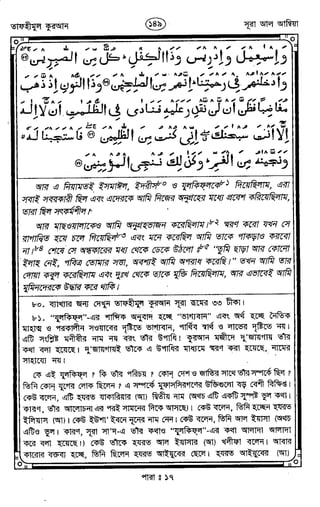 তাফহীমুল কুরআন ১৪৯ সূরা আল আম্বিয়া
وَإِسْمٰعِيْلَ وَإِدْرِيْسَ وَذَا الْكِفْلِ ۖ كُلٌّ مِّنَ الصّٰبِرِيْنَ
وَأَدْخَلْنٰهُمْ فِيْ رَحْمَتِنَا ۖ إِنَّهُمْ مِّنَ الصّٰلِحِيْنَ وَذَا النُّوْنِ إِذْ ذَّهَبَ
مُغَاضِبًا فَظَنَّ أَنْ لَّنْ نَّقْدِرَ عَلَيْهِ فَنَادٰى فِي الظُّلُمٰتِ أَنْ لَّا إِلٰهَ
إِلَّا أَنْتَ سُبْحٰنَكَ ۖ إِنِّيْ كُنْتُ مِنَ الظّٰلِمِيْنَ فَاسْتَجَبْنَا لَهٗ
وَنَجَّيْنٰهُ مِنَ الْغَمِّ ۖ وَكَذٰلِكَ نُنْجِي الْمُؤْمِنِيْنَ
আর এ নিয়ামতই ইসমাঈল, ইদরীস৮০ ও যুলকিফ্‌লকে৮১ দিয়েছিলাম, এরা
সবাই সবরকারী ছিল এবং এদেরকে আমি নিজের অনুগ্রহের মধ্যে প্রবেশ করিয়েছিলাম,
তারা ছিল সৎকর্মশীল।
আর মাছওয়ালাকেও আমি অনুগ্রহভাজন করেছিলাম।৮২ স্মরণ করো যখন সে
রাগান্বিত হয়ে চলে গিয়েছিল৮৩ এবং মনে করেছিল আমি তাকে পাকড়াও করবো
না।৮৪ শেষে সে অন্ধকারের মধ্য থেকে ডেকে উঠলো৮৫ "তুমি ছাড়া আর কোনো
ইলাহ নেই, পবিত্র তোমার সত্তা, অবশ্যই আমি অপরাধ করেছি।" তখন আমি তার
দোয়া কবুল করেছিলাম এবং দুঃখ থেকে তাকে মুক্তি দিয়েছিলাম, আর এভাবেই আমি
মুমিনদেরকে উদ্ধার করে থাকি।
৮০. ব্যাখ্যার জন্য দেখুন তাফহীমুল কুরআন সূরা মারয়াম ৩৩ টীকা।
৮১. "যুলকিফ্‌ল"-এর শাব্দিক অনুবাদ হচ্ছে "ভাগ্যবান" এবং অর্থ হচ্ছে নৈতিক
মাহাত্ম ও পরকালীন সওয়াবের দৃষ্টিতে ভাগ্যবান, পার্থিব স্বার্থ ও লাভের দৃষ্টিতে নয়।
এটি সংশ্লিষ্ট মনীষীর নাম নয় বরং তাঁর উপাধি। কুরআন মজীদে দু'জায়গায় তাঁর
কথা বলা হয়েছে। দু'জায়গায়ই তাঁকে এ উপাধির মাধ্যমে স্মরণ করা হয়েছে, নামের
সাহায্যে নয়।
কে এই যুলকিফ্‌ল? কি তাঁর পরিচয়? কোন্ দেশ ও জাতির সাথে তাঁর সম্পর্ক ছিল?
তিনি কোন্ যুগের লোক ছিলেন? এ সম্পর্কে মুফাসসিরগণের উক্তিগুলো বড় বেশী বিক্ষিপ্ত।
কেউ বলেন, এটি হযরত যাকারিয়ার (আ) দ্বিতীয় নাম (অথচ এটি একটি সুস্পষ্ট ভুল কথা।
কারণ, তাঁর আলোচনা এর পরই সামনের দিকে আসছে)। কেউ বলেন, তিনি হচ্ছেন হযরত
ইলিয়াস (আ)। কেউ ইউশা' ইবনে নূনের নাম নেন। কেউ বলেন, তিনি আল ইয়াসা (অথচ
এটিও ভুল। কারণ, সূরা সা'দ-এ তাঁর কথাও "যুলকিফ্‌ল"-এর কথা আলাদা আলাদা
করে বলা হয়েছে।) কেউ তাঁকে হযরত আল ইয়াসার (আ) খলীফা বলেন। আবার
কারোর বক্তব্য হচ্ছে, তিনি ছিলেন হযরত আইয়ুবের ছেলে। হযরত আইয়ুবের (আ)
পারা : ১৭